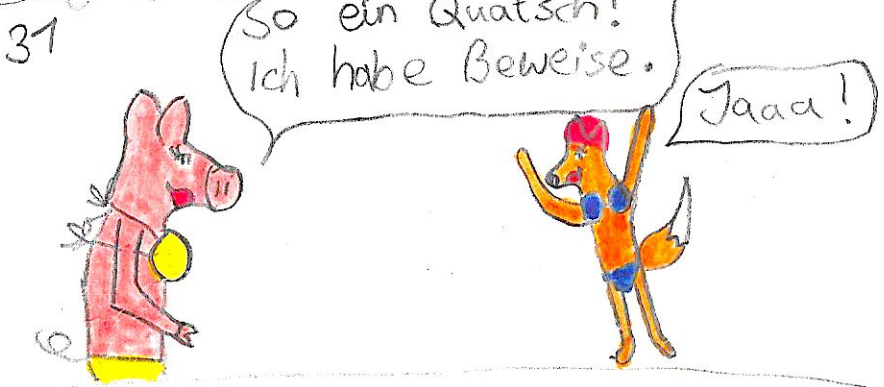 31
So ein Quatsch!
Ich habe Beweise.
Jaaa!